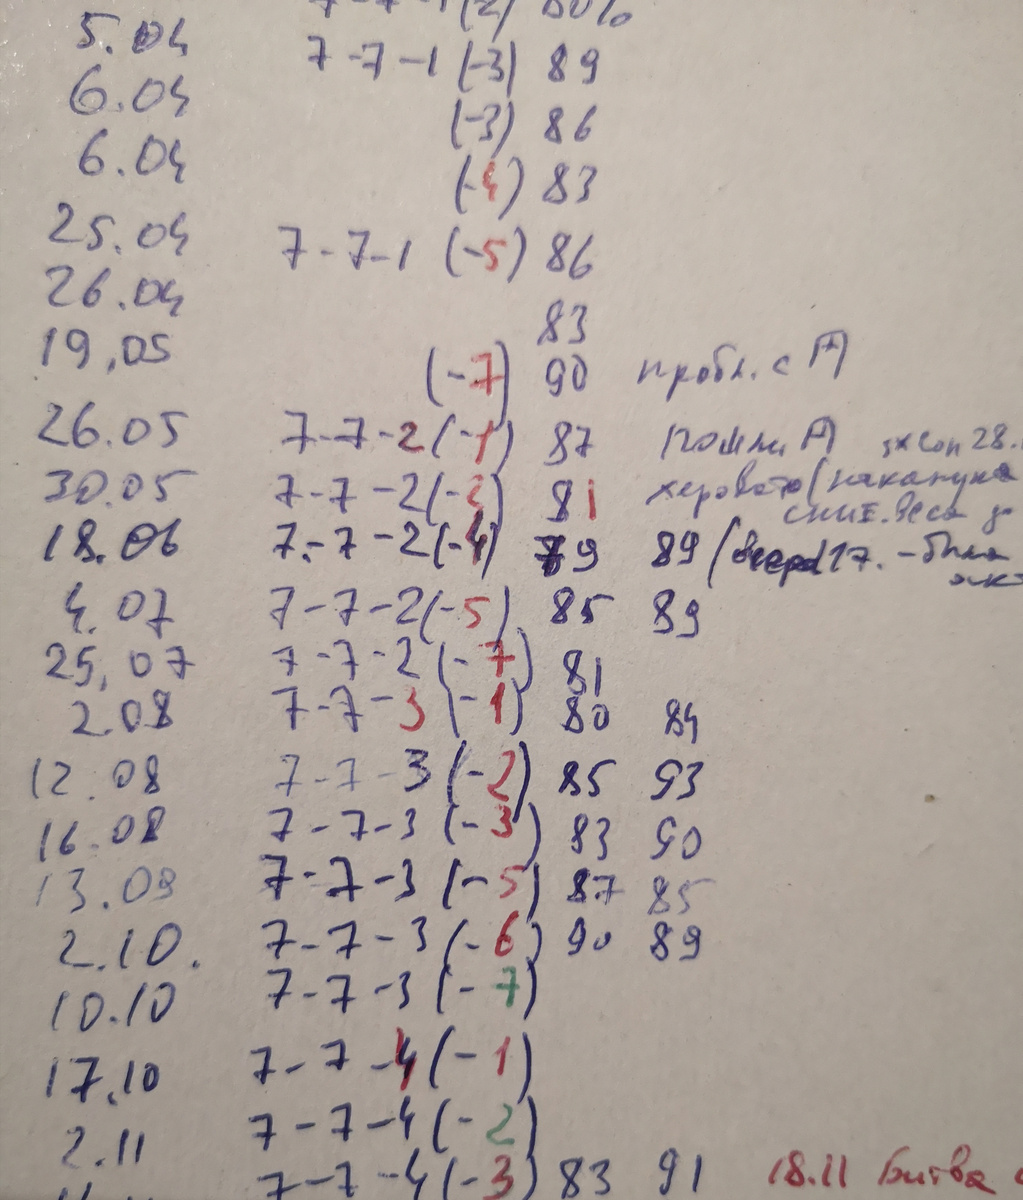 7-7-1(-2) 80%
5.04 7-7-1 (-3) 89
6.04 (-3) 86
6.04 (-4) 83
25.04 7-7-1 (-5) 86
26.04 83
19.05 (-7) 90 пробл. с А
26.05 7-7-2(-1) 87 пошли А эхсоп 28.
30.05 7-7-2(-2) 81 херовато (накануне
сниж. веса до
18.06 7-7-2(-4) 79 89 (вчера 17. - была
4.07 7-7-2(-5) 85 89
25.07 7-7-2(-7) 81
2.08 7-7-3(-1) 80 84
12.08 7-7-3(-2) 85 93
16.08 7-7-3(-3) 83 90
13.09 7-7-3(-5) 87 85
2.10. 7-7-3(-6) 90 89
10.10 7-7-3(-7)
17.10 7-7-4(-1)
2.11 7-7-4(-2)
7-7-4(-3) 83 91 18.11 Битва